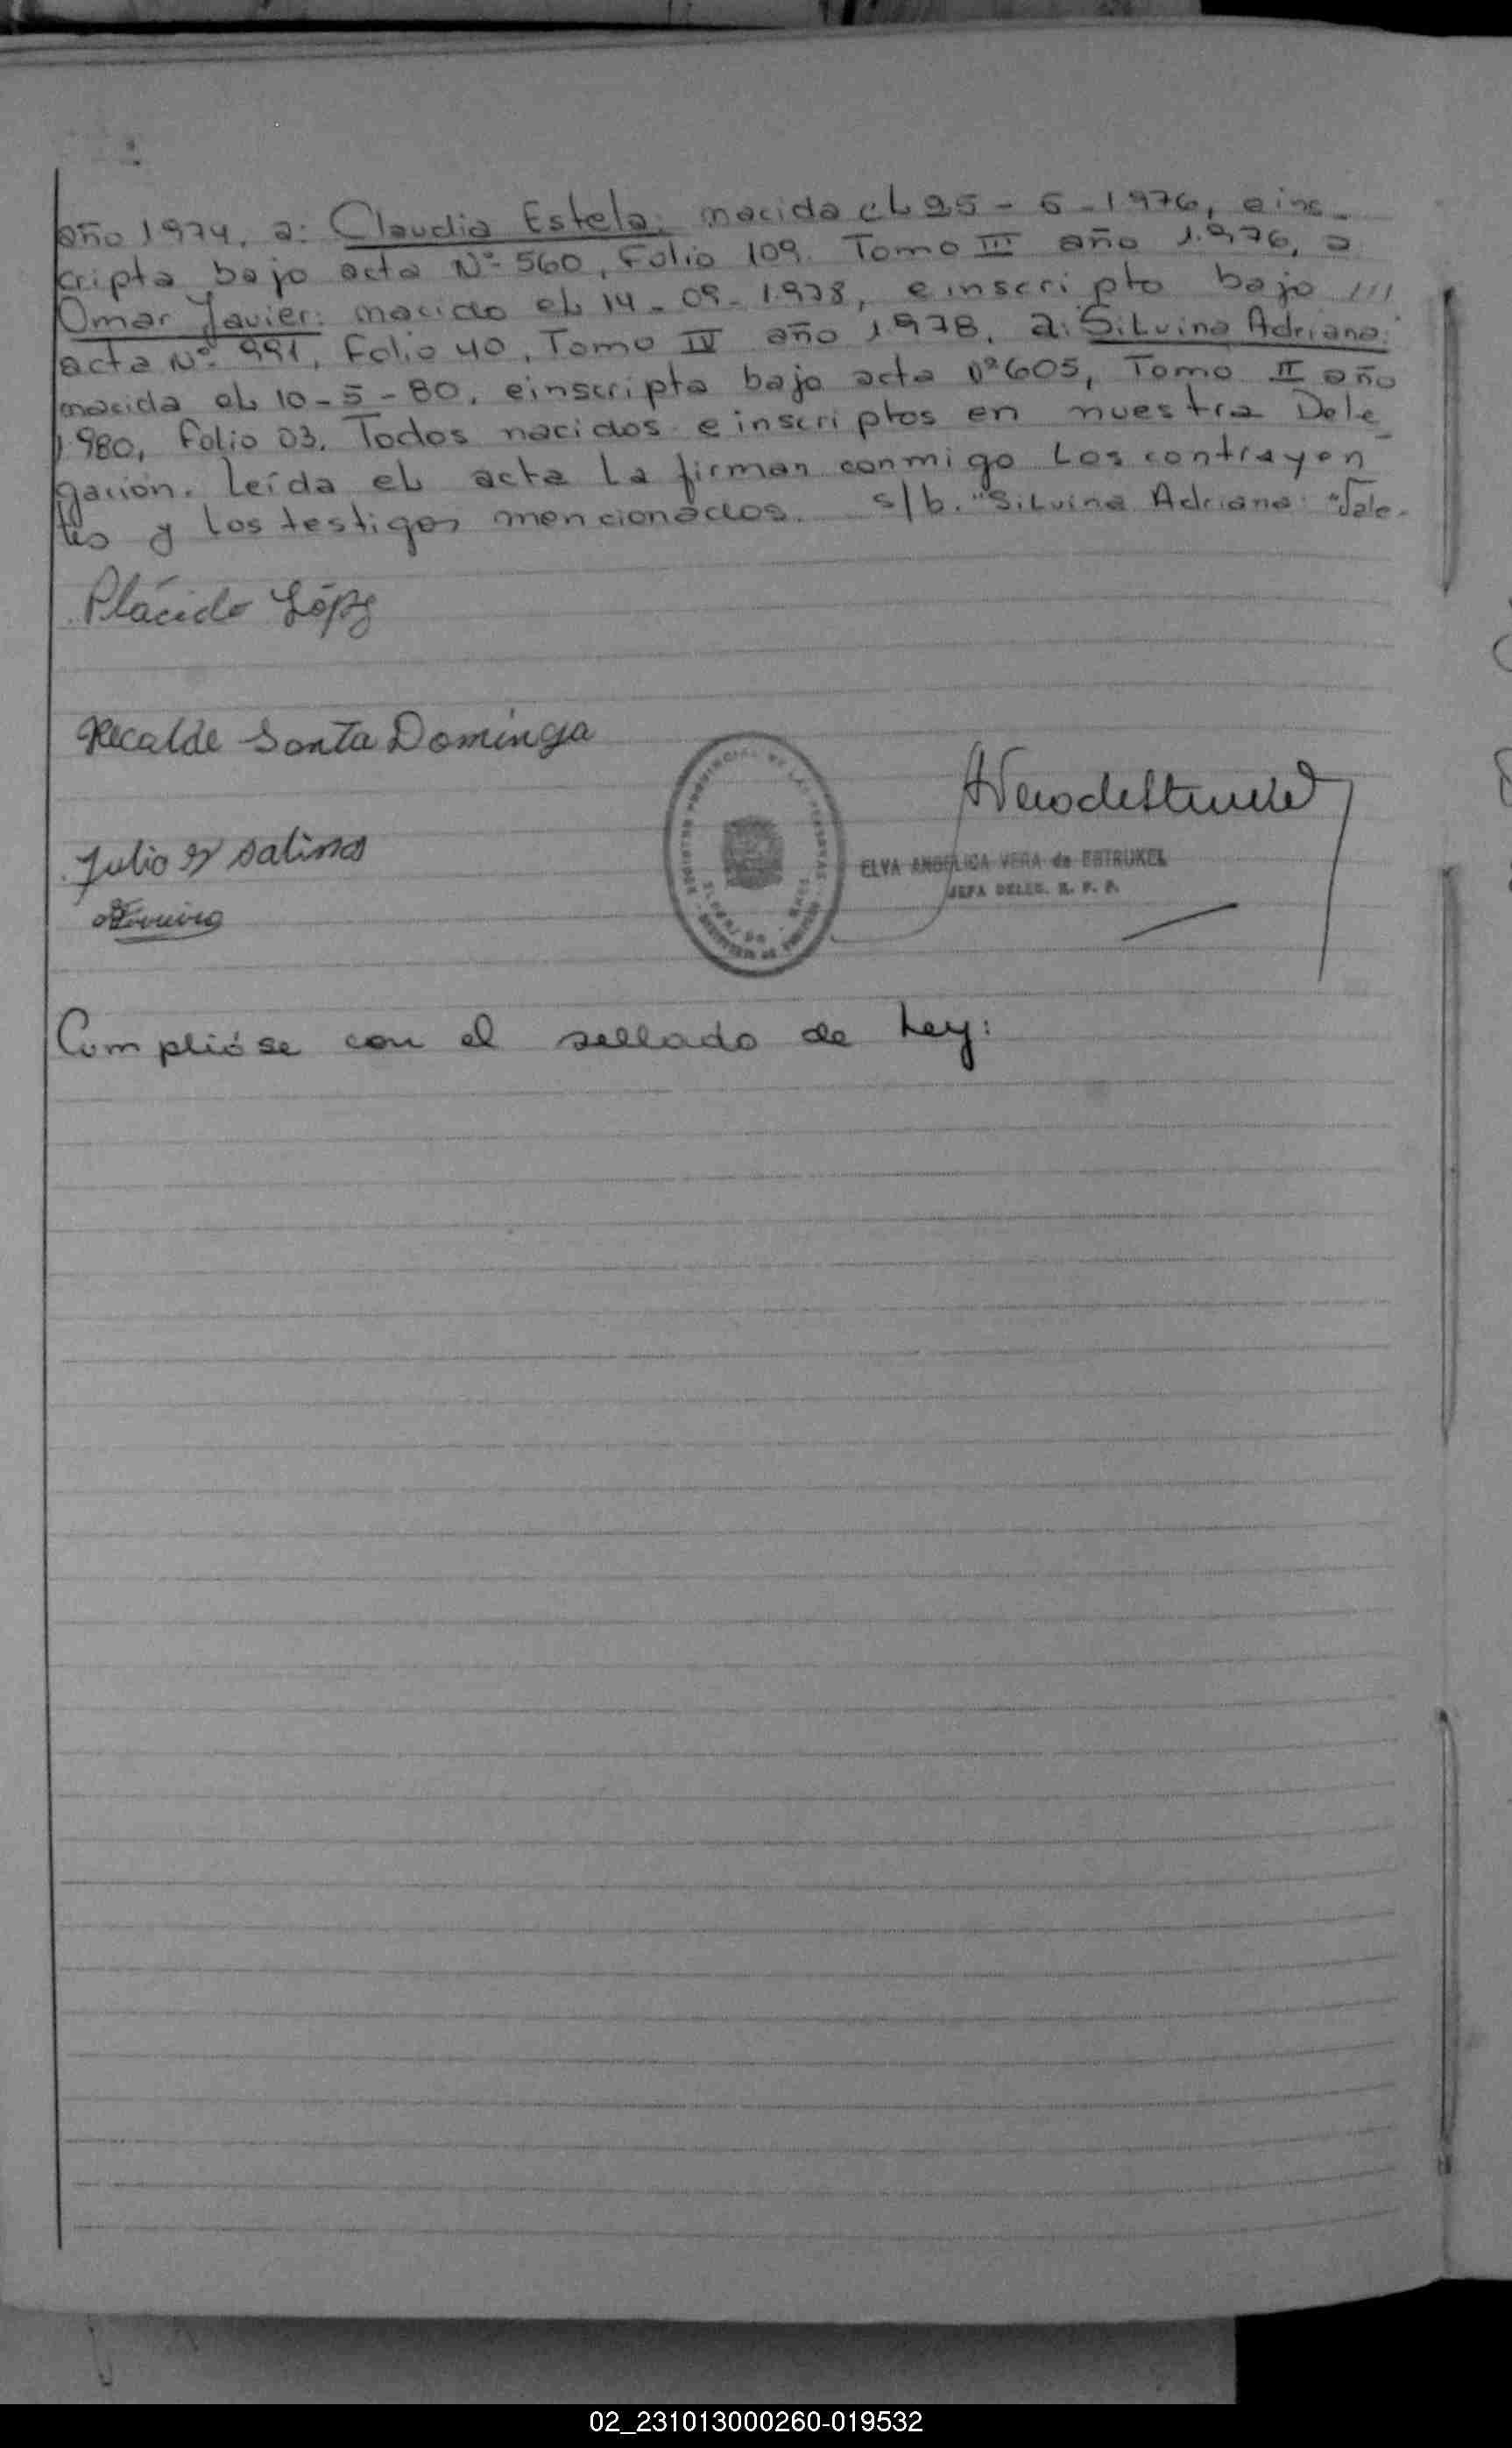 año 1974, a: Claudia Estela: nacida el 25-6-1976, e ins-
cripta bajo acta Nº 560, Folio 109. Tomo III año 1.976, a
Omar Javier: nacido el 14-09-1.978, e inscripto bajo ///
acta Nº 991, Folio 40, Tomo IV año 1978, a: Silvina Adriana:
nacida el 10-5-80, e inscripta bajo acta Nº 605, Tomo II año
1.980, Folio 03. Todos nacidos e inscriptos en nuestra Dele_
gación. Leída el acta la firman conmigo los contrayen
tes y los testigos mencionados. s/b. "Silvina Adriana: "Vale-
Plácido López
Recalde Santa Dominga
Julio Salinas
ELVA ANGELICA VERA de ESTRUKEL
JEFA DELEG. R. P. P.
Cumplióse con el sellado de Ley:
02_231013000260-019532